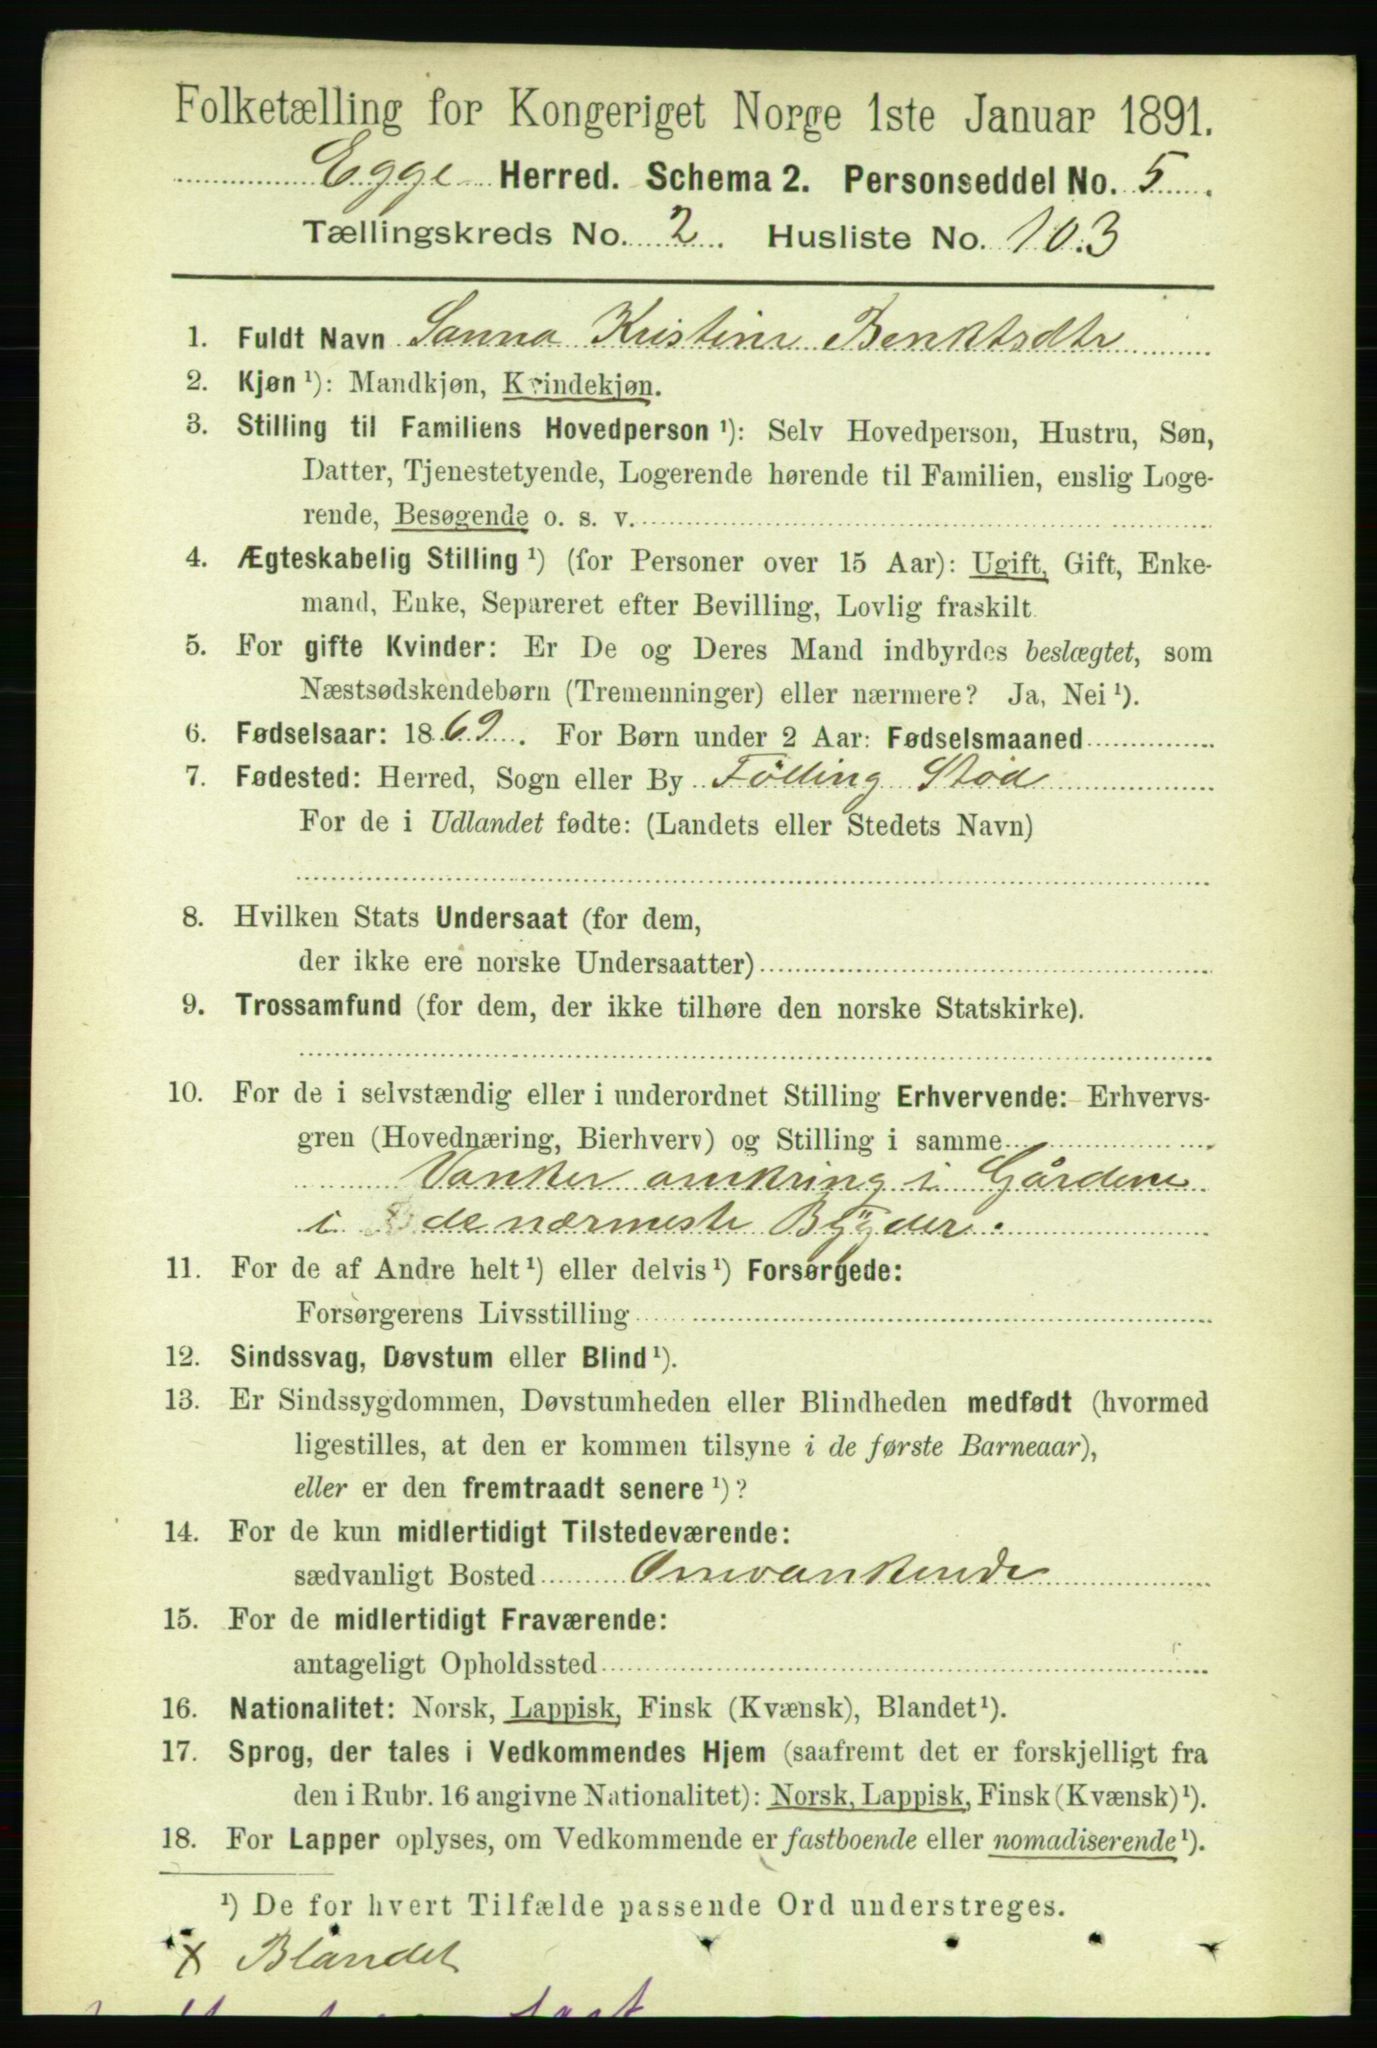 Folketælling for Kongeriget Norge 1ste Januar 1891.
Egge Herred. Schema 2. Personseddel No. 5.
Tællingskreds No. 2. Husliste No. 103
1. Fuldt Navn Sanna Kristine Benktsdtr
2. Kjøn ¹): Mandkjøn, Kvindekjøn.
3. Stilling til Familiens Hovedperson ¹): Selv Hovedperson, Hustru, Søn,
Datter, Tjenestetyende, Logerende hørende til Familien, enslig Loge-
rende, Besøgende o. s. v.
4. Ægteskabelig Stilling ¹) (for Personer over 15 Aar): Ugift, Gift, Enke-
mand, Enke, Separeret efter Bevilling, Lovlig fraskilt.
5. For gifte Kvinder: Er De og Deres Mand indbyrdes beslægtet, som
Næstsødskendebørn (Tremenninger) eller nærmere? Ja, Nei ¹).
6. Fødselsaar: 1869. For Børn under 2 Aar: Fødselsmaaned
7. Fødested: Herred, Sogn eller By Fölling Stod
For de i Udlandet fødte: (Landets eller Stedets Navn)
8. Hvilken Stats Undersaat (for dem,
der ikke ere norske Undersaatter)
9. Trossamfund (for dem, der ikke tilhøre den norske Statskirke).
10. For de i selvstændig eller i underordnet Stilling Erhvervende: Erhvervs-
gren (Hovednæring, Bierhverv) og Stilling i samme
Vanker omkring i Gårdene
i de nærmeste Bÿgder.
11. For de af Andre helt ¹) eller delvis ¹) Forsørgede:
Forsørgerens Livsstilling
12. Sindssvag, Døvstum eller Blind ¹).
13. Er Sindssygdommen, Døvstumheden eller Blindheden medfødt (hvormed
ligestilles, at den er kommen tilsyne i de første Barneaar),
eller er den fremtraadt senere ¹)?
14. For de kun midlertidigt Tilstedeværende:
sædvanligt Bosted Omvankende
15. For de midlertidigt Fraværende:
antageligt Opholdssted
16. Nationalitet: Norsk, Lappisk, Finsk (Kvænsk), Blandet ¹).
17. Sprog, der tales i Vedkommendes Hjem (saafremt det er forskjelligt fra
den i Rubr. 16 angivne Nationalitet): Norsk, Lappisk, Finsk (Kvænsk) ¹).
18. For Lapper oplyses, om Vedkommende er fastboende eller nomadiserende ¹).
¹) De for hvert Tilfælde passende Ord understreges.
x Blandet